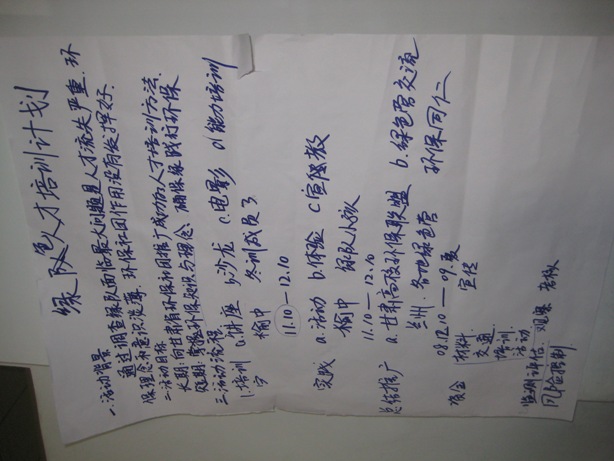 绿队人才培训计划
一.活动背景
通过调查绿队面临最大问题是人才流失严重.环
保理念和意识淡薄.环保社团作用没有发挥好.
二活动目标
长期:向甘肃省环保社团推广成功的人才培训方法.
短期:掌握环保知识与理念.确保绿队践行环保
三活动流程
1.培训 a.讲座 b.沙龙 c.电影 d能力培训
榆中
11.10—12.10
实践 a.活动 b.体验 c宣传教
榆中 绿队小队
11.10—12.10
总结推广 a.甘肃高校环保联盟 b.绿色营交流
兰州.各地绿色营 环保同仁
09.12.10—09.夏
资金 材料 宣传
交通
培训
活动
监测评估
风险控制